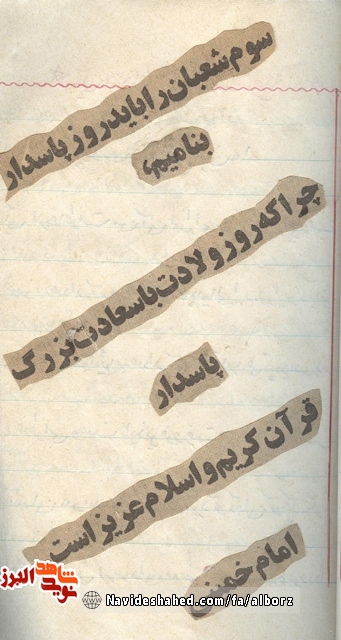 سوم شعبان را باید روز پاسدار
بنامیم،
چرا که روز ولادت با سعادت بزرگ
پاسدار
قرآن کریم و اسلام عزیز است
امام خمینی
نوید شاهد البرز
Navideshahed.com/fa/alborz